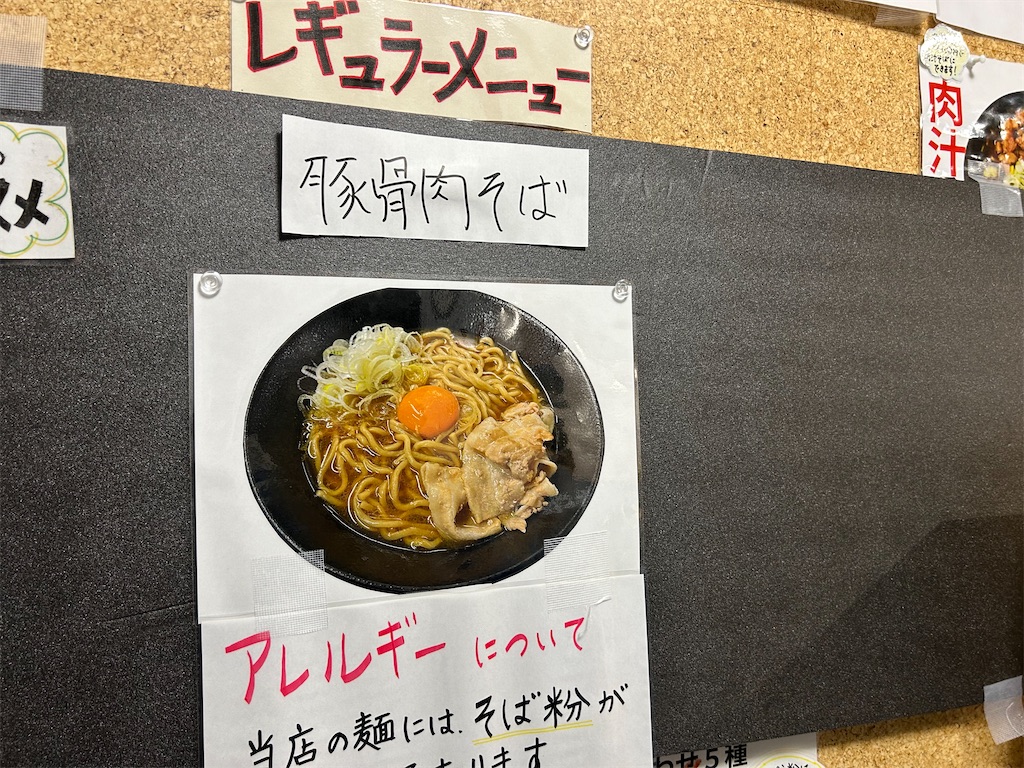 レギュラーメニュー
豚骨肉そば
肉汁
できます!
スメ
アレルギーについて
当店の麺には、そば粉が
あります
わせ5種